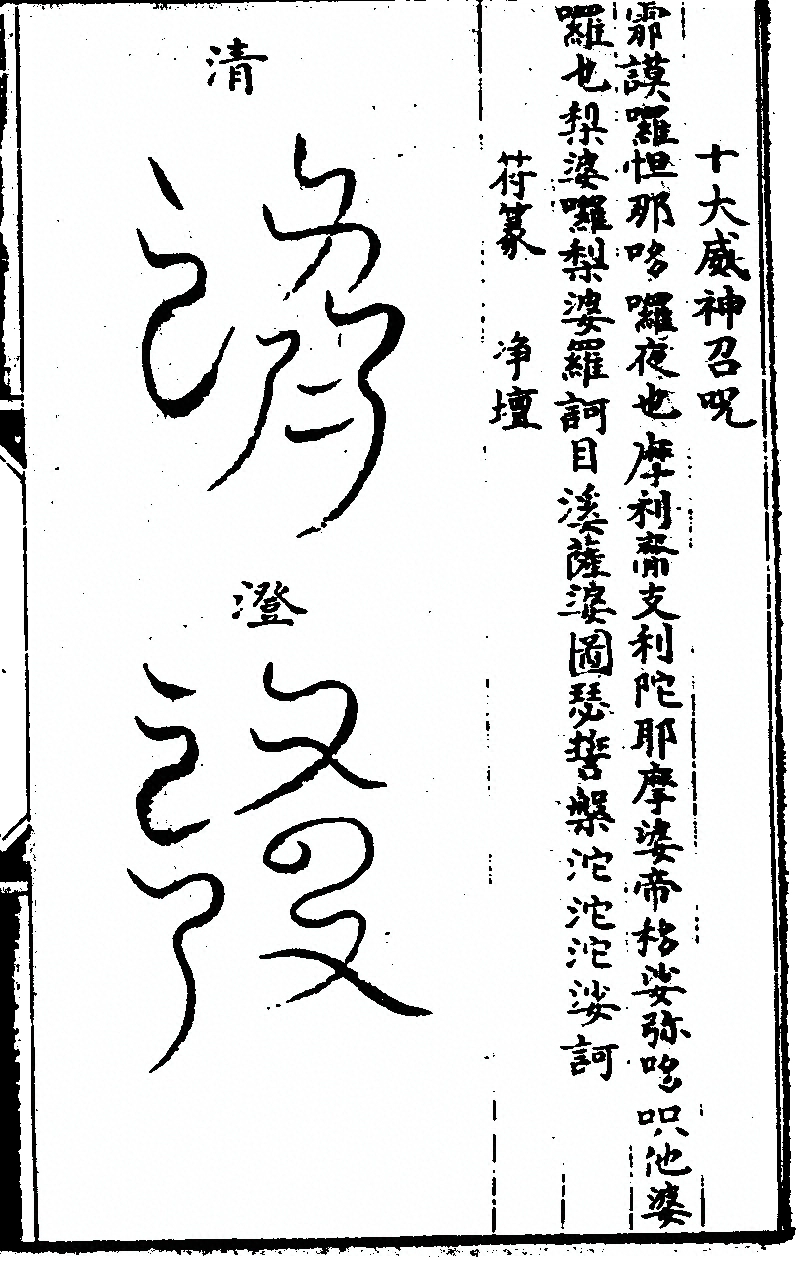 十大威神召咒
謨囉怛那哆囉夜也摩利齋支利陀耶摩婆帝稱娑弥哆呪他婆
羅也梨婆囉梨婆羅訶目溪薩婆圖瑟誓槃沱沱沱娑訶
符篆　净壇
清
澄